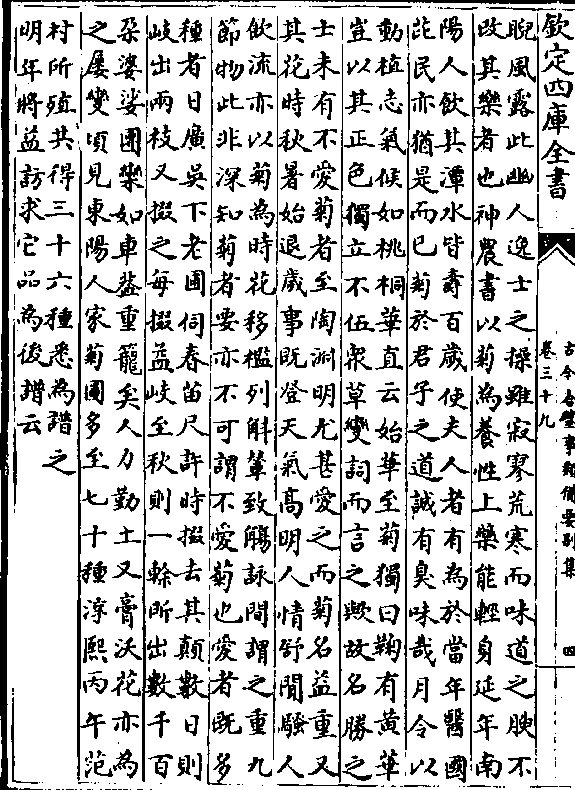 欽定四庫全書
古今合璧事類備要別集
卷三十九
四
睨風露此幽人逸士之操雖寂寥荒寒而味道之腴不
改其樂者也神農書以菊為養性上藥能輕身延年南
陽人飲其潭水皆壽百歲使夫人者有為於當年醫國
芘民亦猶是而已菊於君子之道誠有臭味哉月令以
動植志氣候如桃桐華直云始華至菊獨曰鞠有黃華
豈以其正色獨立不伍衆草變詞而言之歟故名勝之
士未有不愛菊者至陶淵明尤甚愛之而菊名益重又
其花時秋暑始退歲事既登天氣高明人情舒閒騷人
飲流亦以菊為時花移檻列斛輦致觴詠間謂之重九
節物此非深知菊者要亦不可謂不愛菊也愛者既多
種者日廣吳下老圃伺春苗尺許時掇去其顛數日則
岐出兩枝又掇之每掇益岐至秋則一榦所出數千百
朶婆娑團欒如車葢重籠矣人力勤土又膏沃花亦為
之屢變頃見東陽人家菊圖多至七十種淳熙丙午范
村所殖其得三十六種悉為譜之
明年將益訪求它品為後譜云